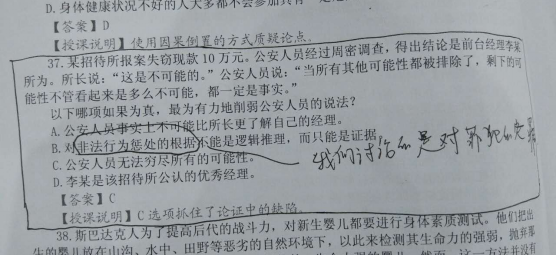 D.身体健康状况不好的人大多都不会参加具有一定
【答案】D
【授课说明】使用因果倒置的方式质疑论点。
37.某招待所报案失窃现款 10 万元。公安人员经过周密调查，得出结论是前台经理李某
所为。所长说：“这是不可能的。”公安人员说：“当所有其他可能性都被排除了，剩下的可
能性不管看起来是多么不可能，都一定是事实。”
以下哪项如果为真，最为有力地削弱公安人员的说法？
A.公安人员事实上不可能比所长更了解自己的经理。
B.对非法行为惩处的根据不能是逻辑推理，而只能是证据
C.公安人员无法穷尽所有的可能性。
我们讨论的是对罪犯的
D.李某是该招待所公认的优秀经理。
【答案】C
【授课说明】C 选项抓住了论证中的缺陷。
38.斯巴达克人为了提高后代的战斗力，对新生婴儿都要进行身体素质测试。他们把出
生的婴儿放在山沟、水中、田野等恶劣的自然环境下，以此来检测其生命力的强弱，抛弃那